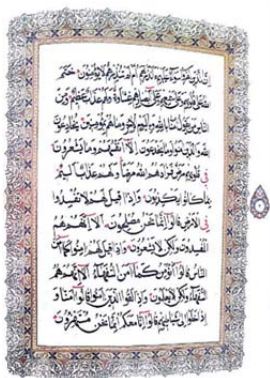 إن الذين كفروا سواء عليهم ءأنذرتهم أم لم تنذرهم لا يؤمنون ختم
الله على قلوبهم وعلى سمعهم وعلى أبصارهم غشاوة ولهم عذاب عظيم ومن
الناس من يقول آمنا بالله وباليوم الآخر وما هم بمؤمنين يخادعون
الله والذين آمنوا وما يخدعون إلا أنفسهم وما يشعرون
في قلوبهم مرض فزادهم الله مرضا ولهم عذاب أليم
بما كانوا يكذبون وإذا قيل لهم لا تفسدوا
في الأرض قالوا إنما نحن مصلحون ألا إنهم هم
المفسدون ولكن لا يشعرون وإذا قيل لهم آمنوا كما آمن
الناس قالوا أنؤمن كما آمن السفهاء ألا إنهم هم
السفهاء ولكن لا يعلمون وإذا لقوا الذين آمنوا قالوا آمنا و
إذا خلوا إلى شياطينهم قالوا إنا معكم إنما نحن مستهزؤن